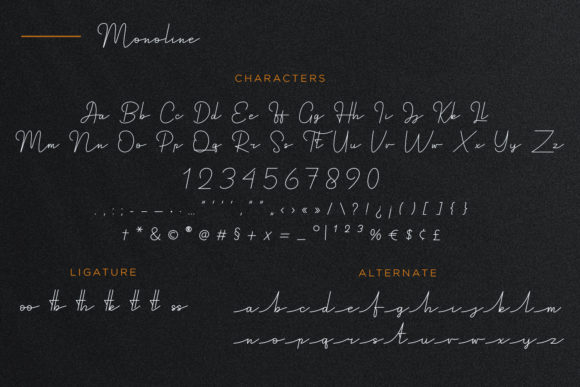 Monoline
CHARACTERS
Aa Bb Cc Dd Ee Ff Gg Hh Ii Jj Kk Ll
Mm Nn Oo Pp Qq Rr Ss Tt Uu Vv Ww Xx Yy Zz
1234567890
. , : ; - – — · · … " ' ' ' , " " „ ‹ › « » / \ ? ! ¿ ¡ ( ) [ ] { }
† * & © ® @ # § + x = _ ° | ¹ ² ³ % € $ ¢ £
LIGATURE
ALTERNATE
oo tb th tk tl tt ss
a b c d e f g h i j k l m
n o p q r s t u v w x y z